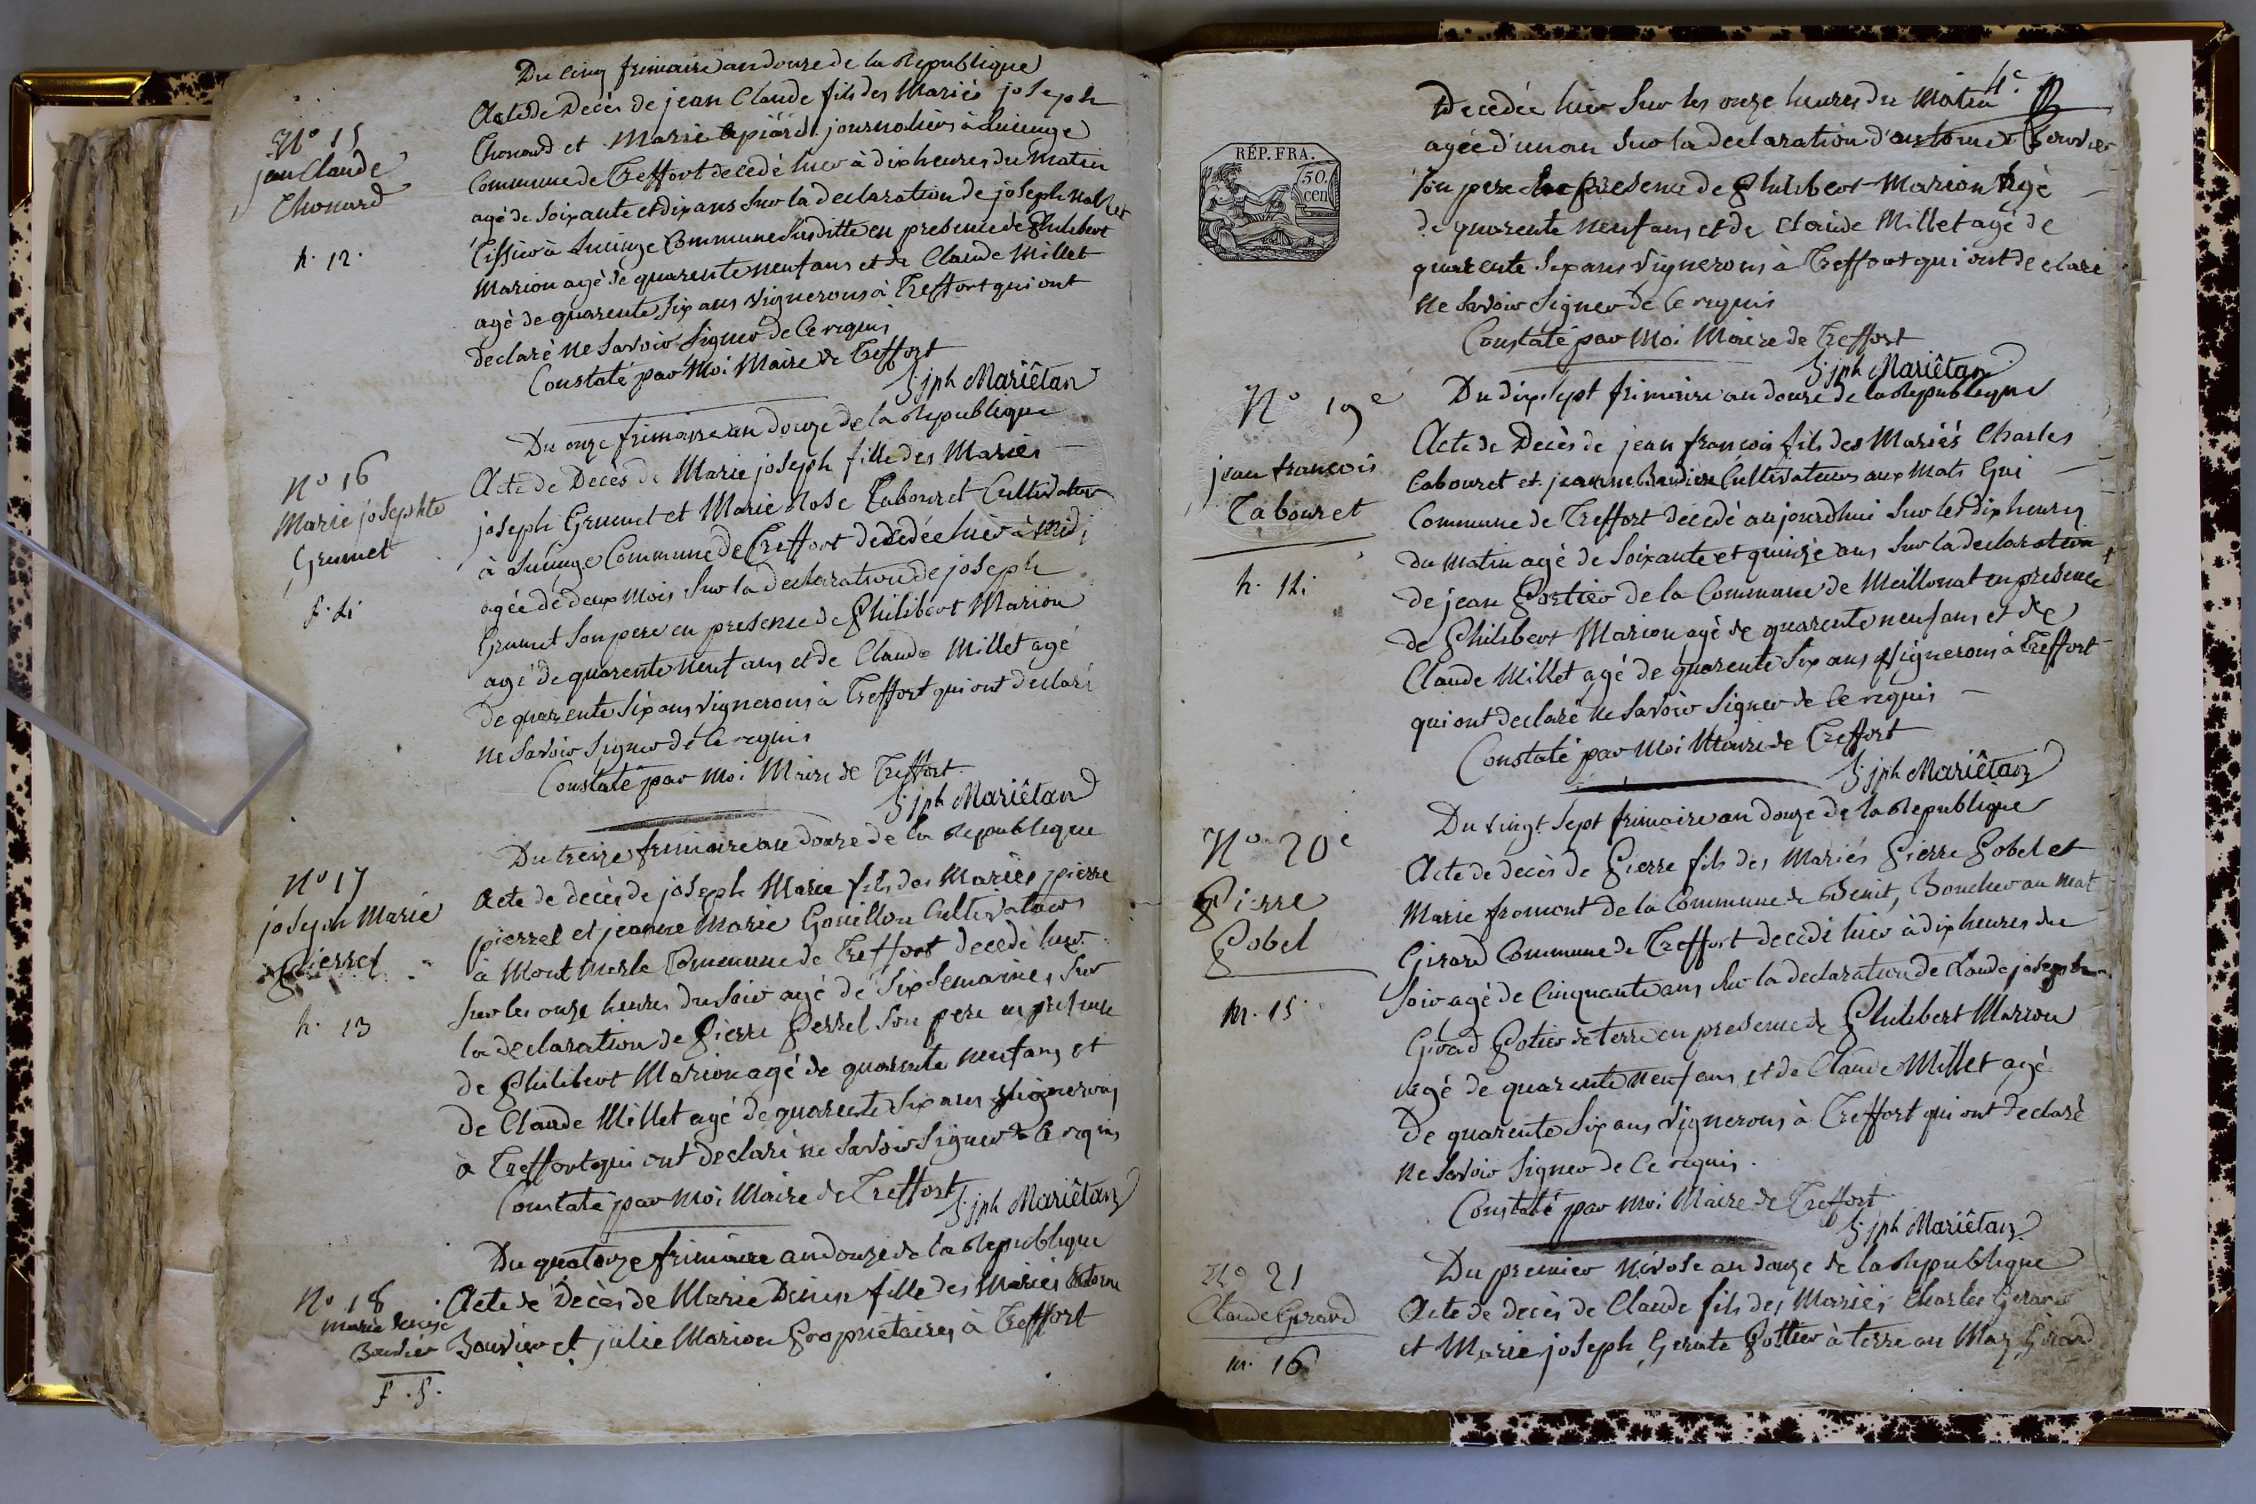 Du cinq frimaire an douze de la Republique
N° 15
jean Claude
Chonard
h. 12.
Acte de Decès de jean Claude fils des Mariés joseph
Chonard et Marie journaliers à Lucinge
Commune de Treffort decedé hier à dix heures du matin
agé de soixante et dix ans sur la declaration de joseph
Tissier à Lucinge Commune susditte en presence de Philibert
Marion agé de quarente neuf ans et de Claude Millet
agé de quarente six ans vignerons à Treffort qui ont
declaré ne savoir signer de ce requis
Constaté par Moi Maire de Treffort
jph Mariêtan
Du onze frimaire an douze de la Republique
N° 16
Marie josephte
Grumet
f. 4.
Acte de Decès de Marie joseph fille des Mariés
joseph Grumet et Marie Rose Tabouret Cultivateur
à Lucinge Commune de Treffort decedée hier à midi
agée de deux mois sur la declaration de joseph
Grumet son pere en presence de Philibert Marion
agé de quarente neuf ans et de Claude Millet agé
de quarente six ans vignerons à Treffort qui ont declaré
ne savoir signer de ce requis
Constaté par Moi Maire de Treffort
jph Mariêtan
Du treize frimaire an douze de la Republique
N° 17
joseph Marie
Pierrel
h. 13
Acte de decès de joseph Marie fils des Mariés pierre
pierrel et jeanne Marie Gouillon Cultivateurs
à Mont Merle Commune de Treffort decedé hier
sur les onze heures du soir agé de six semaines, sur
la declaration de Pierre Perrel son pere en presence
de Philibert Marion agé de quarente neuf ans et
de Claude Millet agé de quarente six ans vignerons
à Treffort qui ont declaré ne savoir signer de ce requis
Constaté par Moi Maire de Treffort
jph Mariêtan
Du quatorze frimaire an douze de la Republique
N° 18
Marie Denise
Bouvier
f. 5.
Acte de Decès de Marie Denise fille des Mariés Antoine
Bouvier et julie Marion Propriétaires à Treffort
4e
RÉP. FRA.
50
cen
Decedée hier sur les onze heures du Matin
agée d'un an sur la declaration d'antoine Bouvier
son pere en presence de Philibert Marion agé
de quarente neuf ans et de Claude Millet agé de
quarente six ans vignerons à Treffort qui ont declaré
ne savoir signer de ce requis
Constaté par Moi Maire de Treffort
jph Mariêtan
Du dix sept frimaire an douze de la Republique
N° 19e
jean francois
Tabouret
h. 14.
Acte de Decès de jean francois fils des Mariés Charles
Tabouret et jeanne Cultivateurs aux Mats Gui
Commune de Treffort decedé aujourdhui sur les dix heures
du matin agé de soixante et quinze ans sur la declaration
de jean Portier de la Commune de Meillonat en presence
de Philibert Marion agé de quarente neuf ans et de
Claude Millet agé de quarente six ans vignerons à Treffort
qui ont declaré ne savoir signer de ce requis
Constaté par Moi Maire de Treffort
jph Mariêtan
Du vingt sept frimaire an douze de la Republique
N° 20e
Pierre
Gobel
m. 15
Acte de decès de Pierre fils des Mariés Pierre Gobel et
Marie fromont de la Commune de Benit, Boucher au mat
Girard Commune de Treffort decedé hier à dix heures du
soir agé de Cinquante ans sur la declaration de Claude joseph
Girad Potier de terre en presence de Philibert Marion
agé de quarente neuf ans et de Claude Millet agé
de quarente six ans vignerons à Treffort qui ont declaré
ne savoir signer de ce requis.
Constaté par Moi Maire de Treffort
jph Mariêtan
Du premier Nivose an douze de la Republique
N° 21
Claude Girard
m. 16
Acte de decès de Claude fils des Mariés Charles Girard
et Marie joseph Potier à terre au Maz Girard